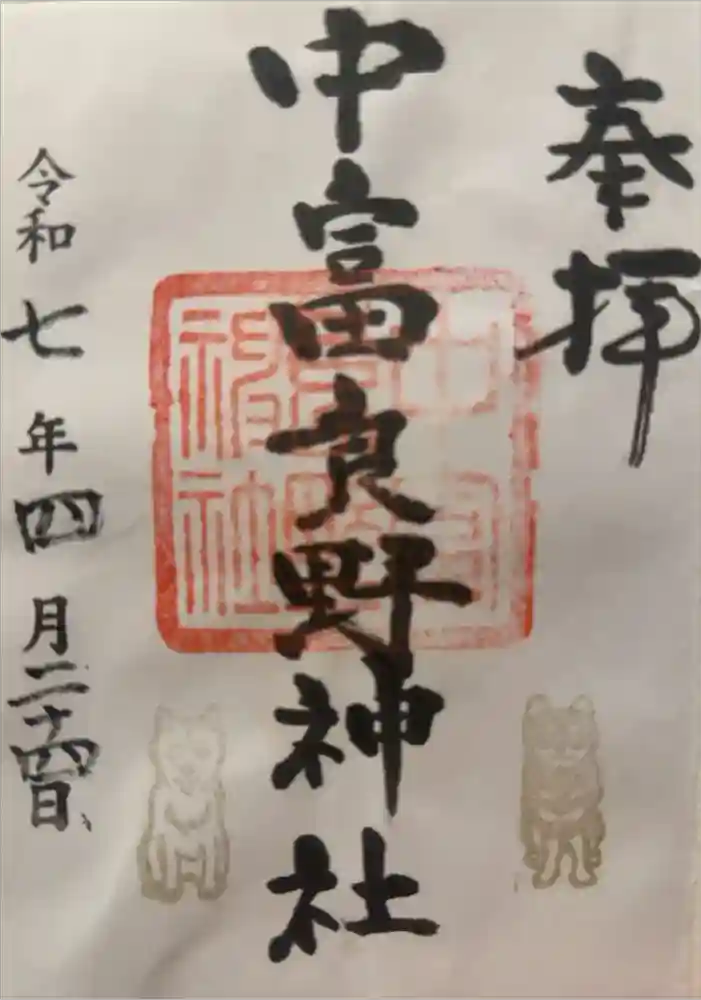 奉拝
中富良野神社
令和七年四月二十四日